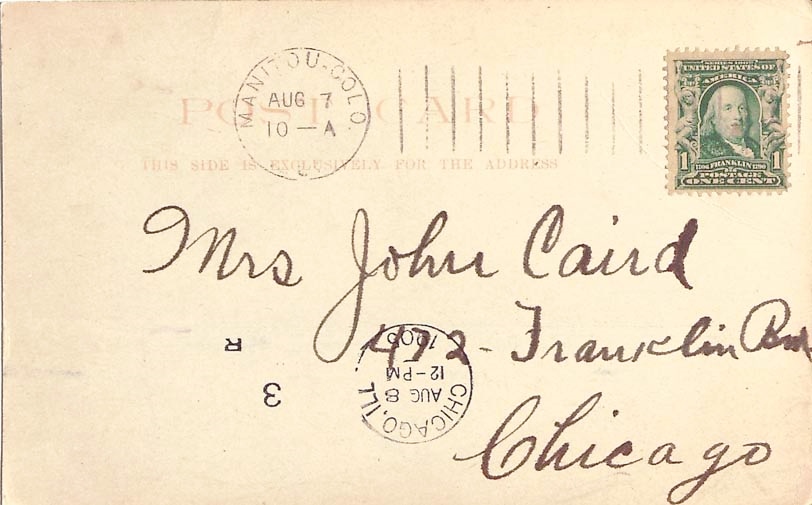 MANITOU-COLO.
AUG 7
10-A
SERIES 1902
UNITED STATES OF
AMERICA
1 FRANKLIN 1
POSTAGE
ONE CENT
POST CARD
THIS SIDE IS EXCLUSIVELY FOR THE ADDRESS
Mrs John Caird
472- Franklin
Chicago
R
3
CHICAGO, ILL.
AUG 8
12-PM